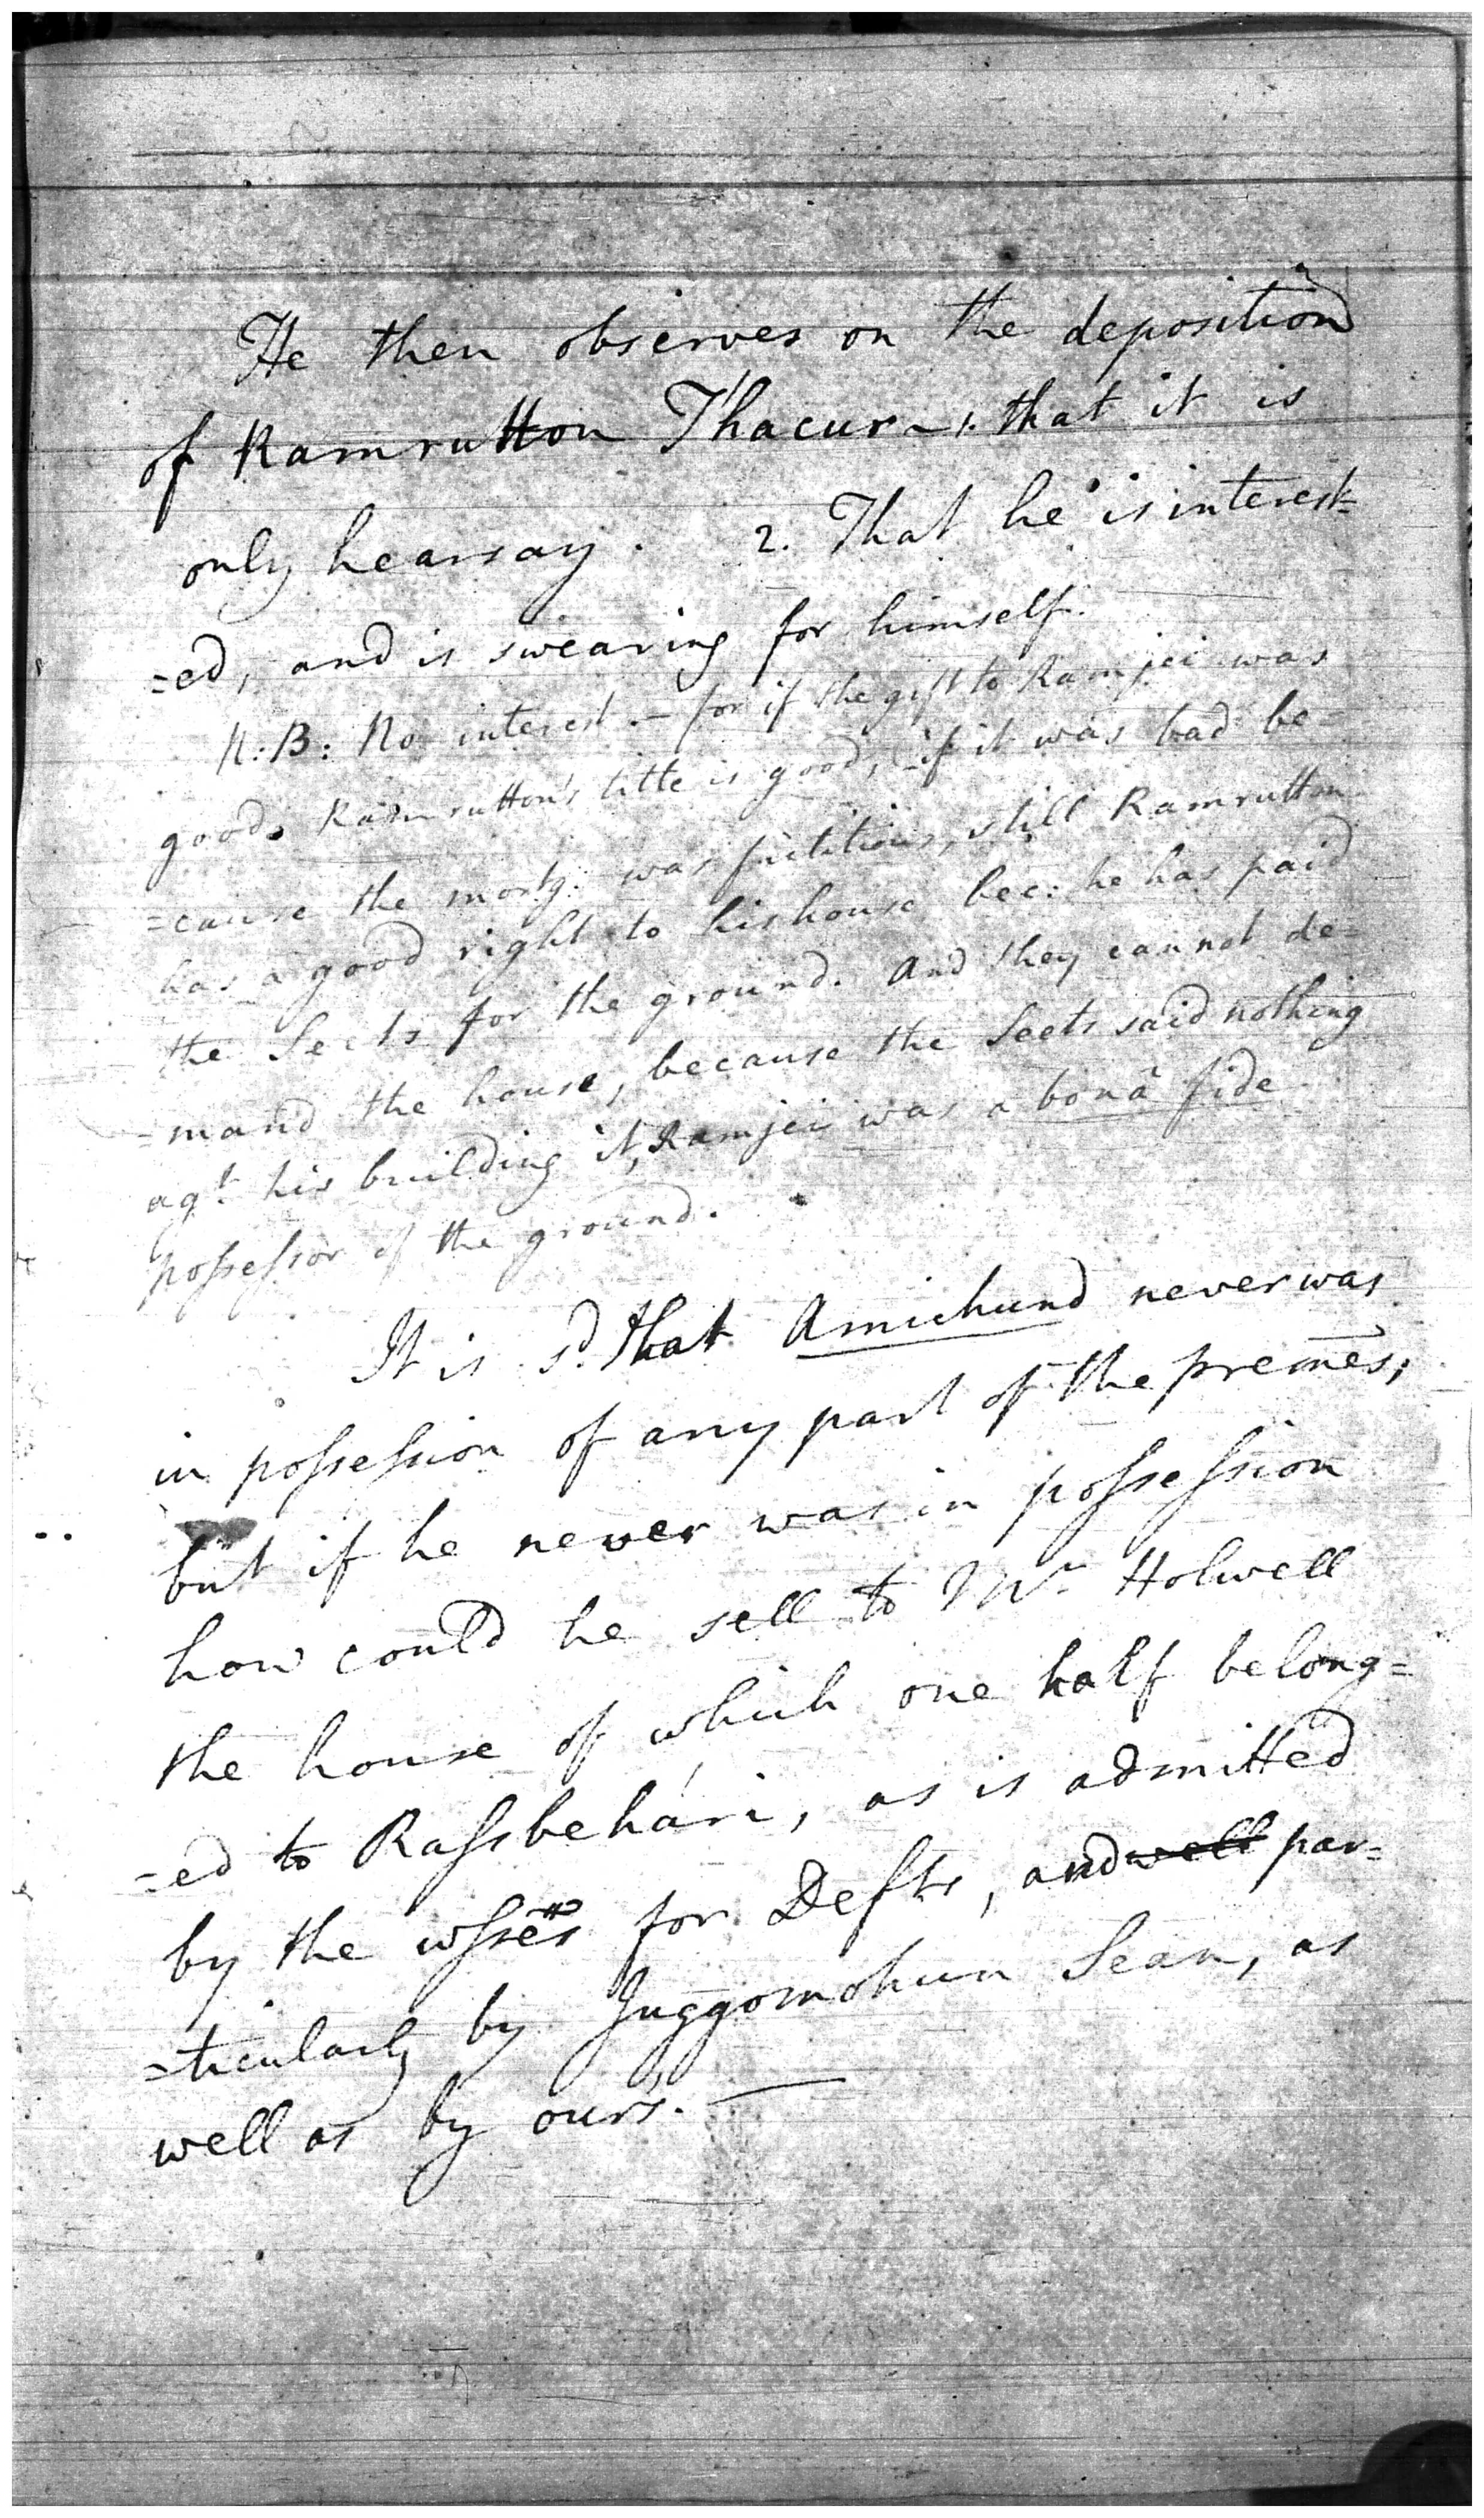 He then observes on the deposition
of Ramrutton Thacur ~ 1. that it is
only hearsay. 2. That he is interest=
=ed, and is swearing for himself.
N:B: No interest. — for if the gift to Ramjei was
good, Ramrutton's title is good, if it was bad be=
=cause the mortg: was fictitious, still Ramrutton
has a good right to his house bec: he has paid
the Seets for the ground. And they cannot de=
=mand the house, because the Seets said nothing
agt. his building it, Ramjei was a bonâ fide
possessor of the ground.
It is sd. that Amichund never was
in possession of any part of the premes;
but if he never was in possession
how could he sell to Mr. Holwell
the house of which one half belong=
=ed to Rassbehári, as is admitted
by the wsses for Defts, and well par=
=ticularly by Juggomohun Sean, as
well as by ours. —